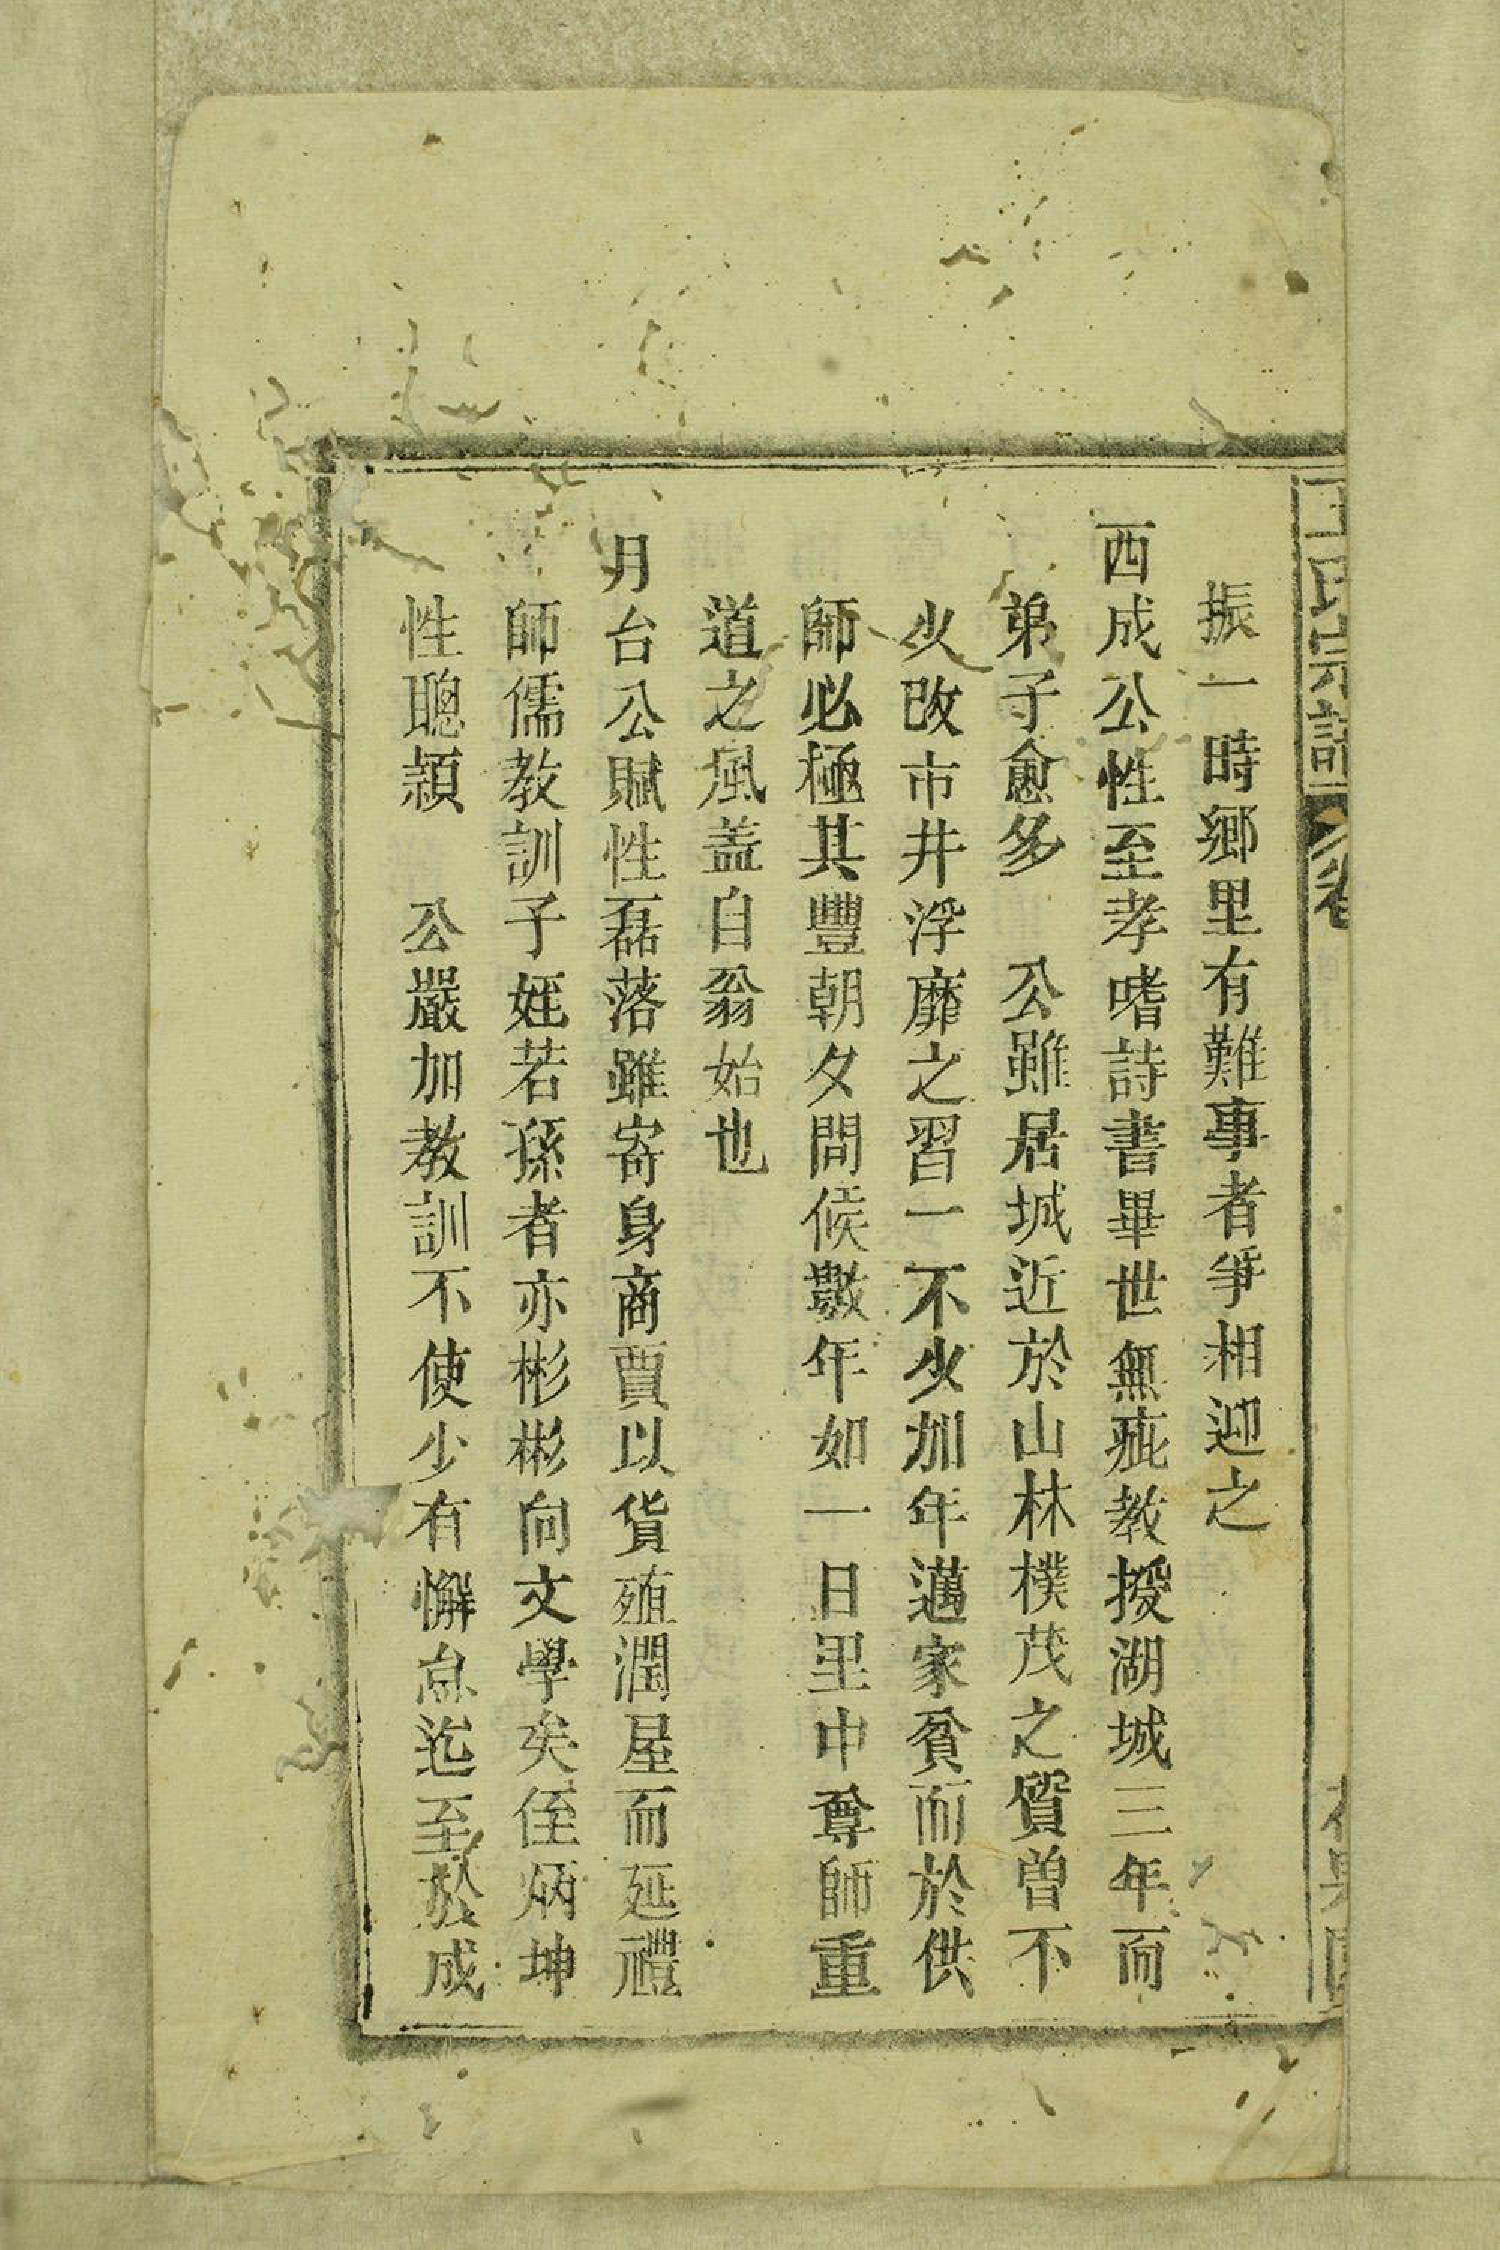 王氏宗譜 卷
振一時鄉里有難事者爭相迎之
西成公性至孝嗜詩書畢世無疵教授湖城三年而
弟子愈多　公雖居城近於山林樸茂之質曽不
少改市井浮靡之習一不少加年邁家貧而於供
師必極其豐朝夕問候數年如一日里中尊師重
道之風蓋自翁始也
月台公賦性磊落雖寄身商賈以貨殖潤屋而延禮
師儒教訓子姪若孫者亦彬彬向文學矣侄炳坤
性聰穎　公嚴加教訓不使少有懈怠迄至於成